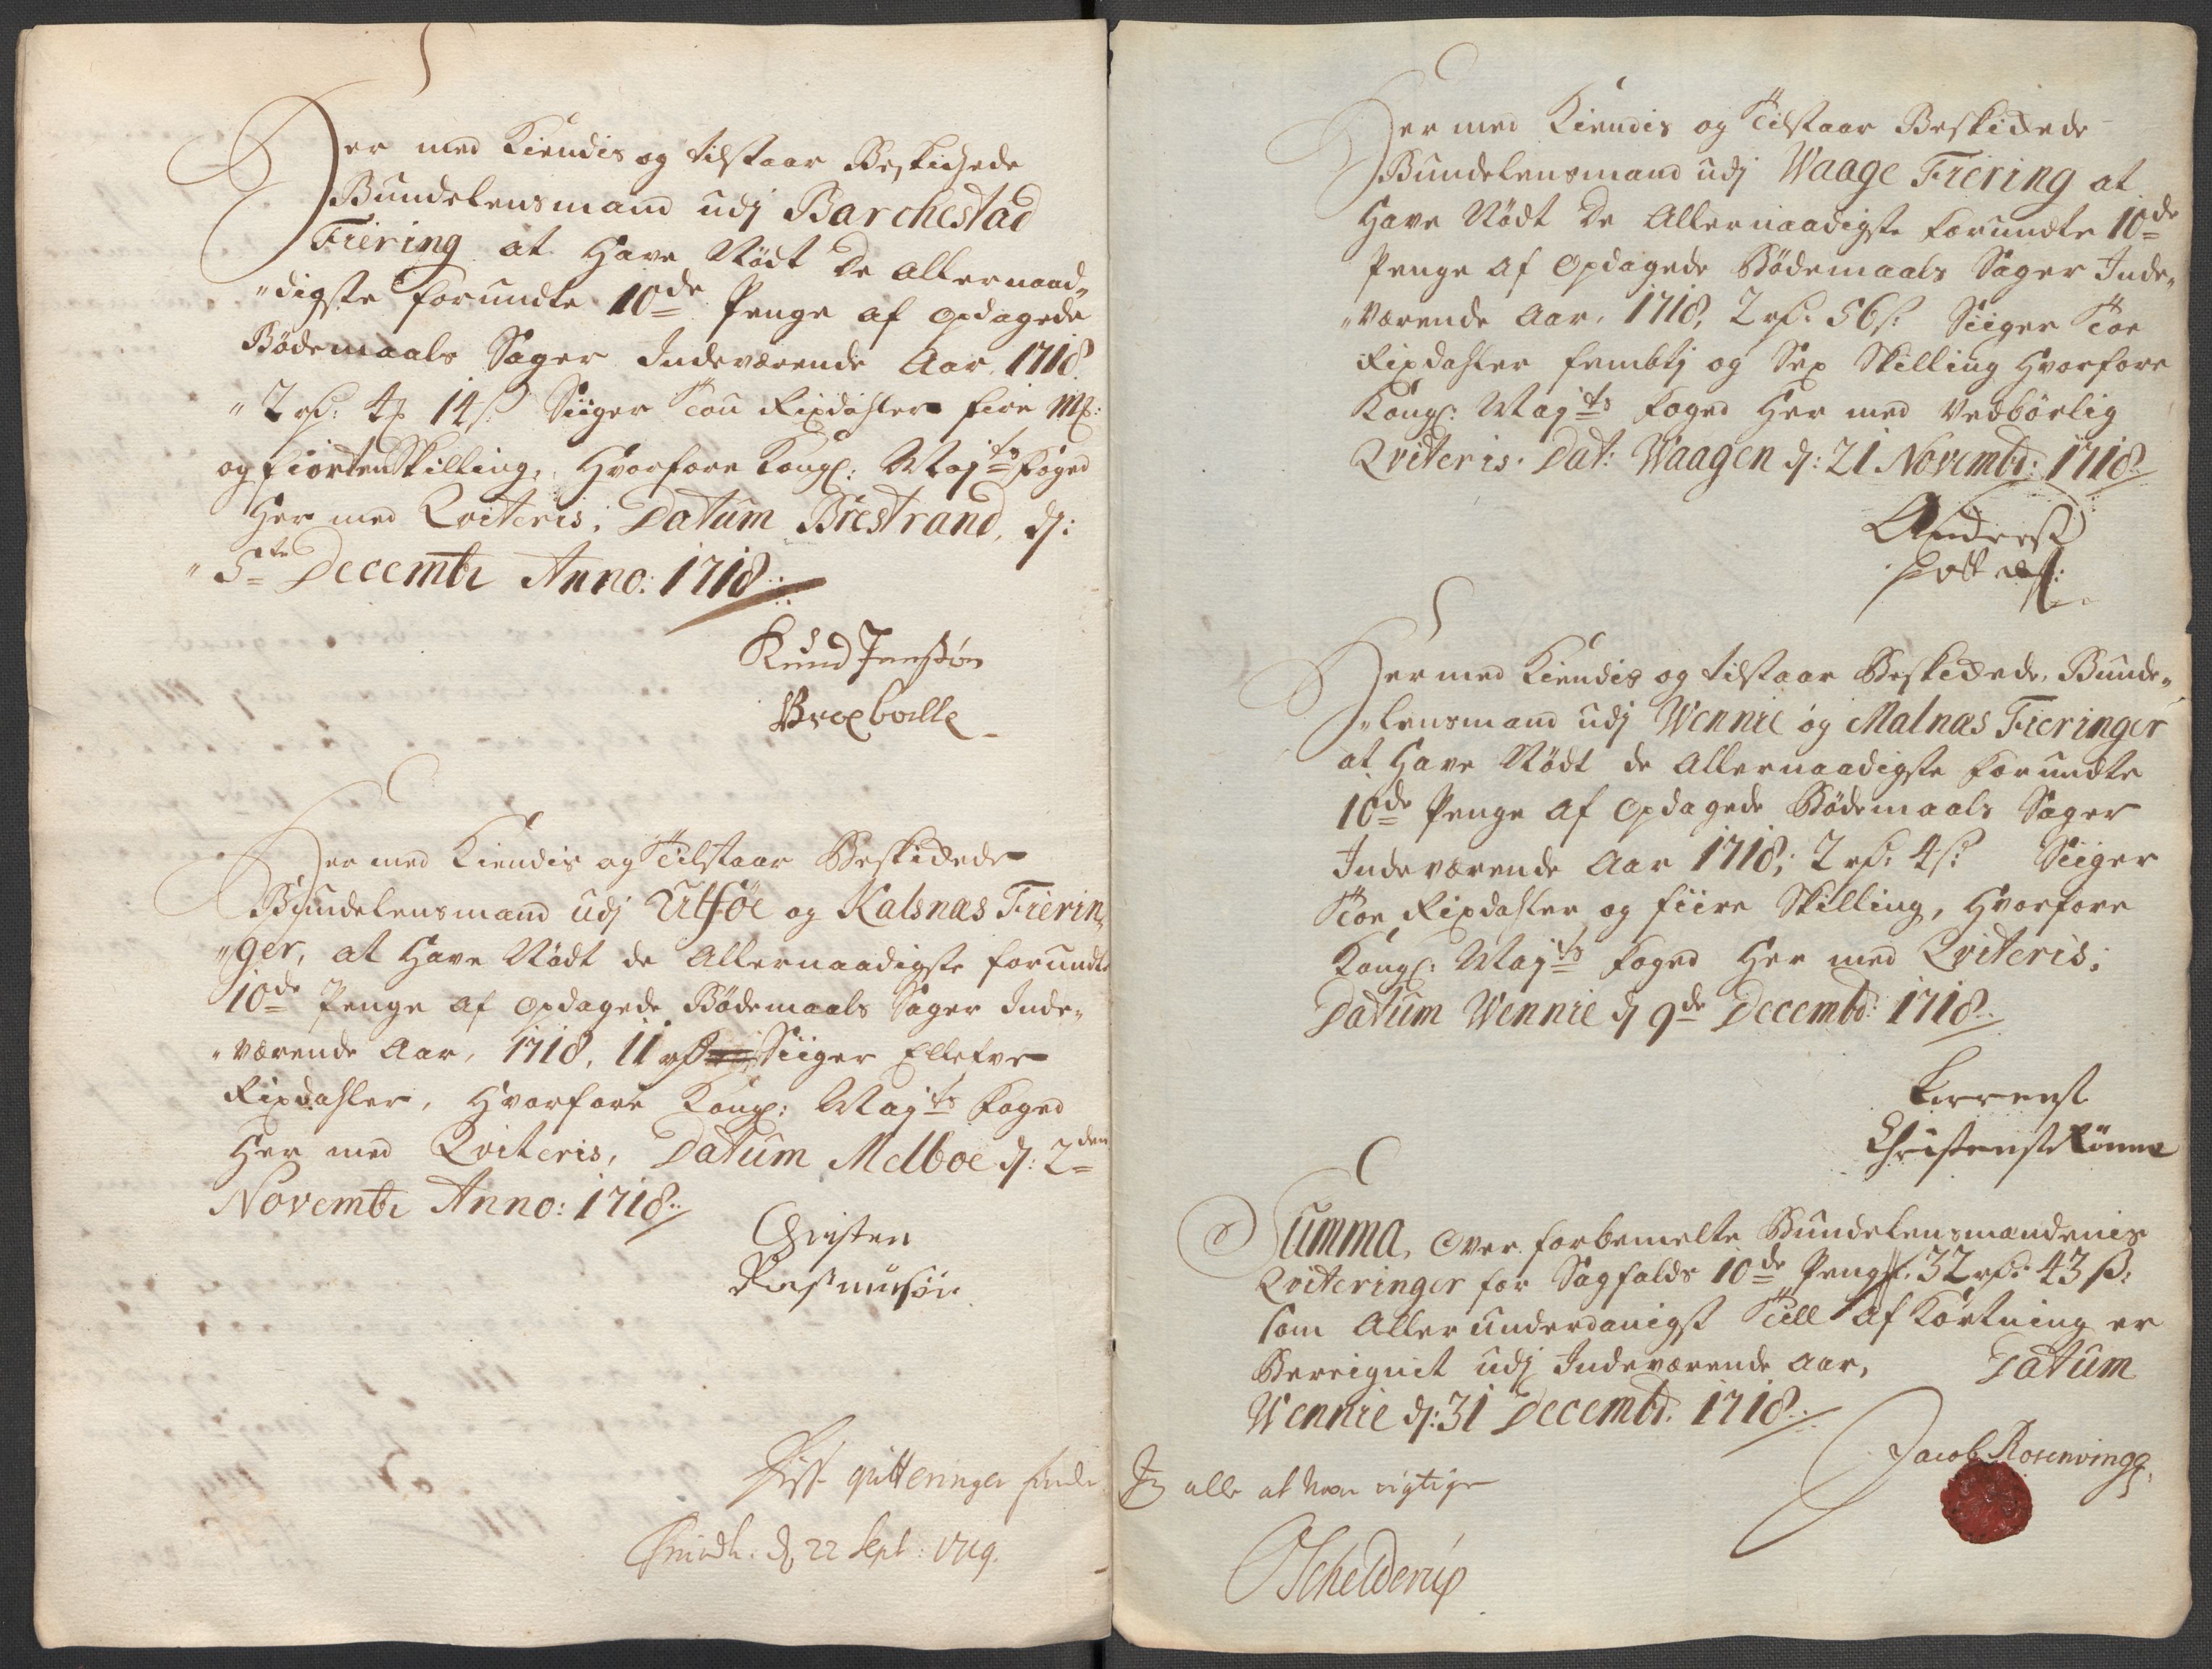 Her med Kiendis og tilstaar Beskichede
Bundelensmand udj Barchestad
Fiering at Have Nödt De Allernaad„
„digste forundte 10de Penge af opdagede
Bödemaals Sager Indeværende Aar 1718
„2 rd: 4 14 s Siiger Tou Rixdahler fire Mk:
og fiorten Skilling, Hvorfore Kongl: Mayts Foged
Her med Qviteris; Datum Brestrand, d:
„5te Decembr Anno: 1718
Knud Jenssön
Broxbolle
Her med Kiendis og Tilstaar Beskickede
Bundelensmand udj Ulföe og Kalsnæs Fierin„
„ger, at Have Nödt de Allernaadigste forundte
10de Penge af opdagede Bödemaals Sager Inde„
„værende Aar, 1718, 11 rd Siiger Ellefve
Rixdahler, Hvorfore Kongl: Mayts Foged
Her med Qviteris, Datum Melboe d: 2den
Novembr Anno: 1718
Christen
Rasmusön
Disse qvitteringer findes
d 22 Sept: 1719.
Her med Kiendis og Tilstaar Beskickede
Bundelensmand udj Waage Fiering at
Have Nödt De Allernaadigste forundte 10de
Penge af Opdagede Bödemaals Sager Inde„
„værende Aar, 1718, 2 rd: 56 s: Siiger Toe
Rixdahler fembtj og Sex Skilling Hvorfore
Kongl: Mayts Foged Her med Vedbörlig
Qviteris. Dat: Waagen d: 21 Novembr: 1718
Anders
Her med Kiendis og tilstaar Beskickede, Bunde„
„lensmand udj Wennie og Malnæs Fieringer
at Have Nödt de Allernaadigste forundte
10de Penge af Opdagede Bödemaals Sager
Indeværende Aar 1718; 2 rd: 4 s: Siiger
Toe Rixdahler og fiire Skilling, Hvorfore
Kongl: Mayts Foged Her med Qviteris;
Datum Wennie d 9de Decembr: 1718
Christens Rönne
Summa, Over forbemelte Bundelensmændenis
Qviteringer for Sagfalds 10de Penge, 32 rd: 43 s:
som Allerunderdanigst Till Afkortning er
Bereignit udj Indeværende Aar, Datum
Wennie d: 31 Decembr. 1718
Jacob Rosenvinge
alle at være rigtige
OSchelderup